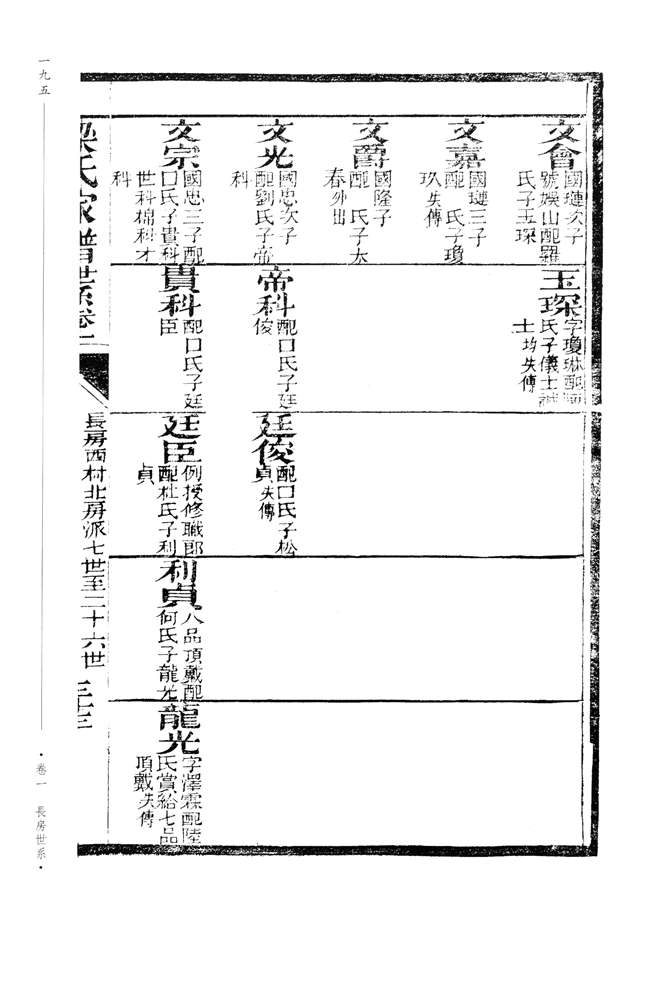 文會
國璉次子
號娛山配羅
氏子玉琛
文嘉
國璉三子
配　氏子瓊
玖失傳
文爵
國隆子
配　氏子太
春外出
文光
國忠次子
配劉氏子帝
科
文宗
國忠三子配
口氏子貴科
世科棉科才
科
玉琛
字瓊琳配
氏子儀士誠
士均失傳
帝科
配口氏子廷
俊
貴科
配口氏子廷
臣
廷俊
配口氏子松
貞失傳
廷臣
例授修職郎
配杜氏子利
貞
利貞
八品頂戴配
何氏子龍光
龍光
字澤霖配陸
氏賞給七品
頂戴失傳
梁氏家譜世系卷一
長房西村北房派七世至二十六世
三十三
一九五
·卷一　長房世系·